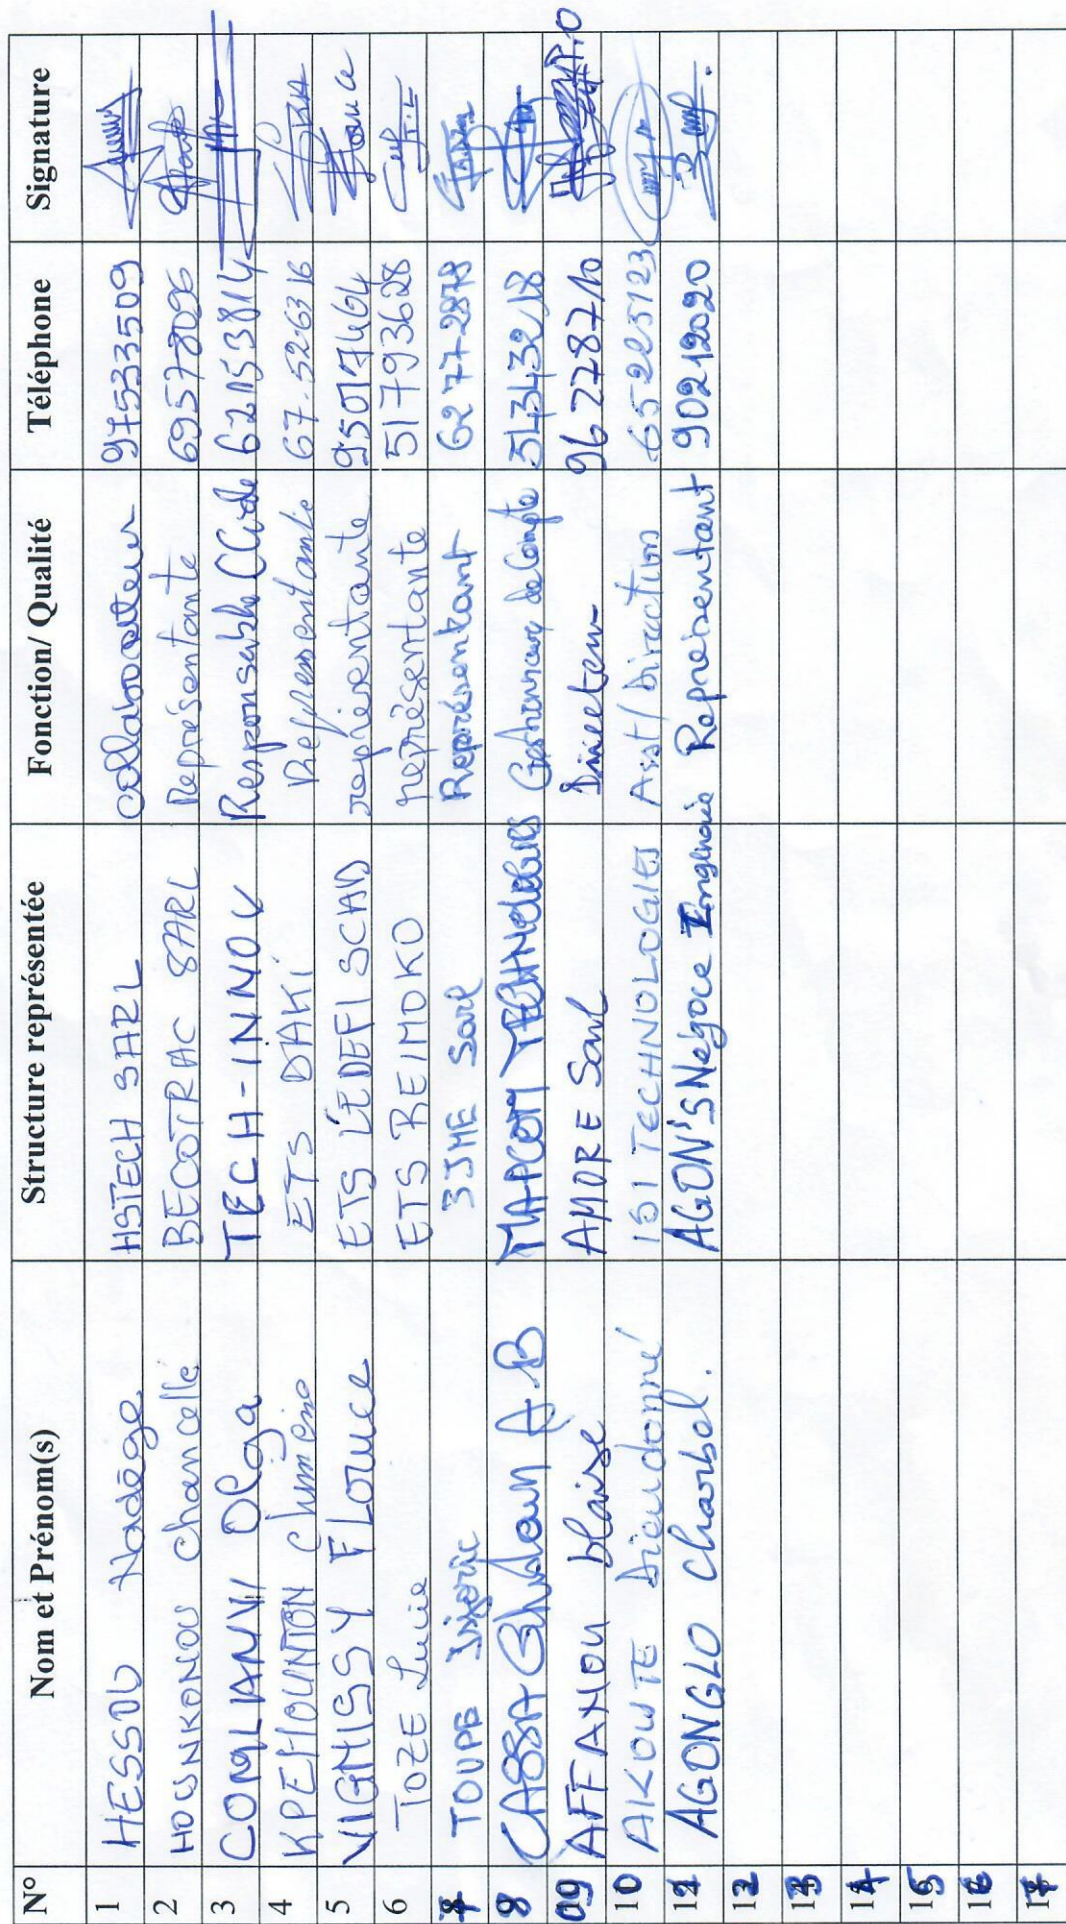 N° Nom et Prénom(s) Structure représentée Fonction/ Qualité Téléphone Signature
1 HESSOU Nadège HSTECH SARL collaborateur 97533509
2 HOUNKONOU Chancelle BECOTRAC SARL Représentante 69578096
3 COMLANVI Olga TECH-INNOV Responsable 62153814
4 KPEHOUNTON ETS DAKI Représentante 67-526316
5 VIGNISSY Florence ETS LEDEFI SCHAD représentante 95017464
6 TOZE Lucie ETS REIMOKO représentante 51793628
7 TOUPE 3JME Sarl Représentant 62772878
8 CASSA A.B MAPCOM TECHNOLOGIES Gestionnaire de Compte 54343218
09 AFFANOU blaise AMORE Sarl Directeur 96778710
10 AKOWTE Dieudonné TECHNOLOGIES Asst/Direction 65223123
11 AGONGLO Charbel. AGON'S Négoce Ingénierie Représentant 90212020
12
13
14
15
16
17